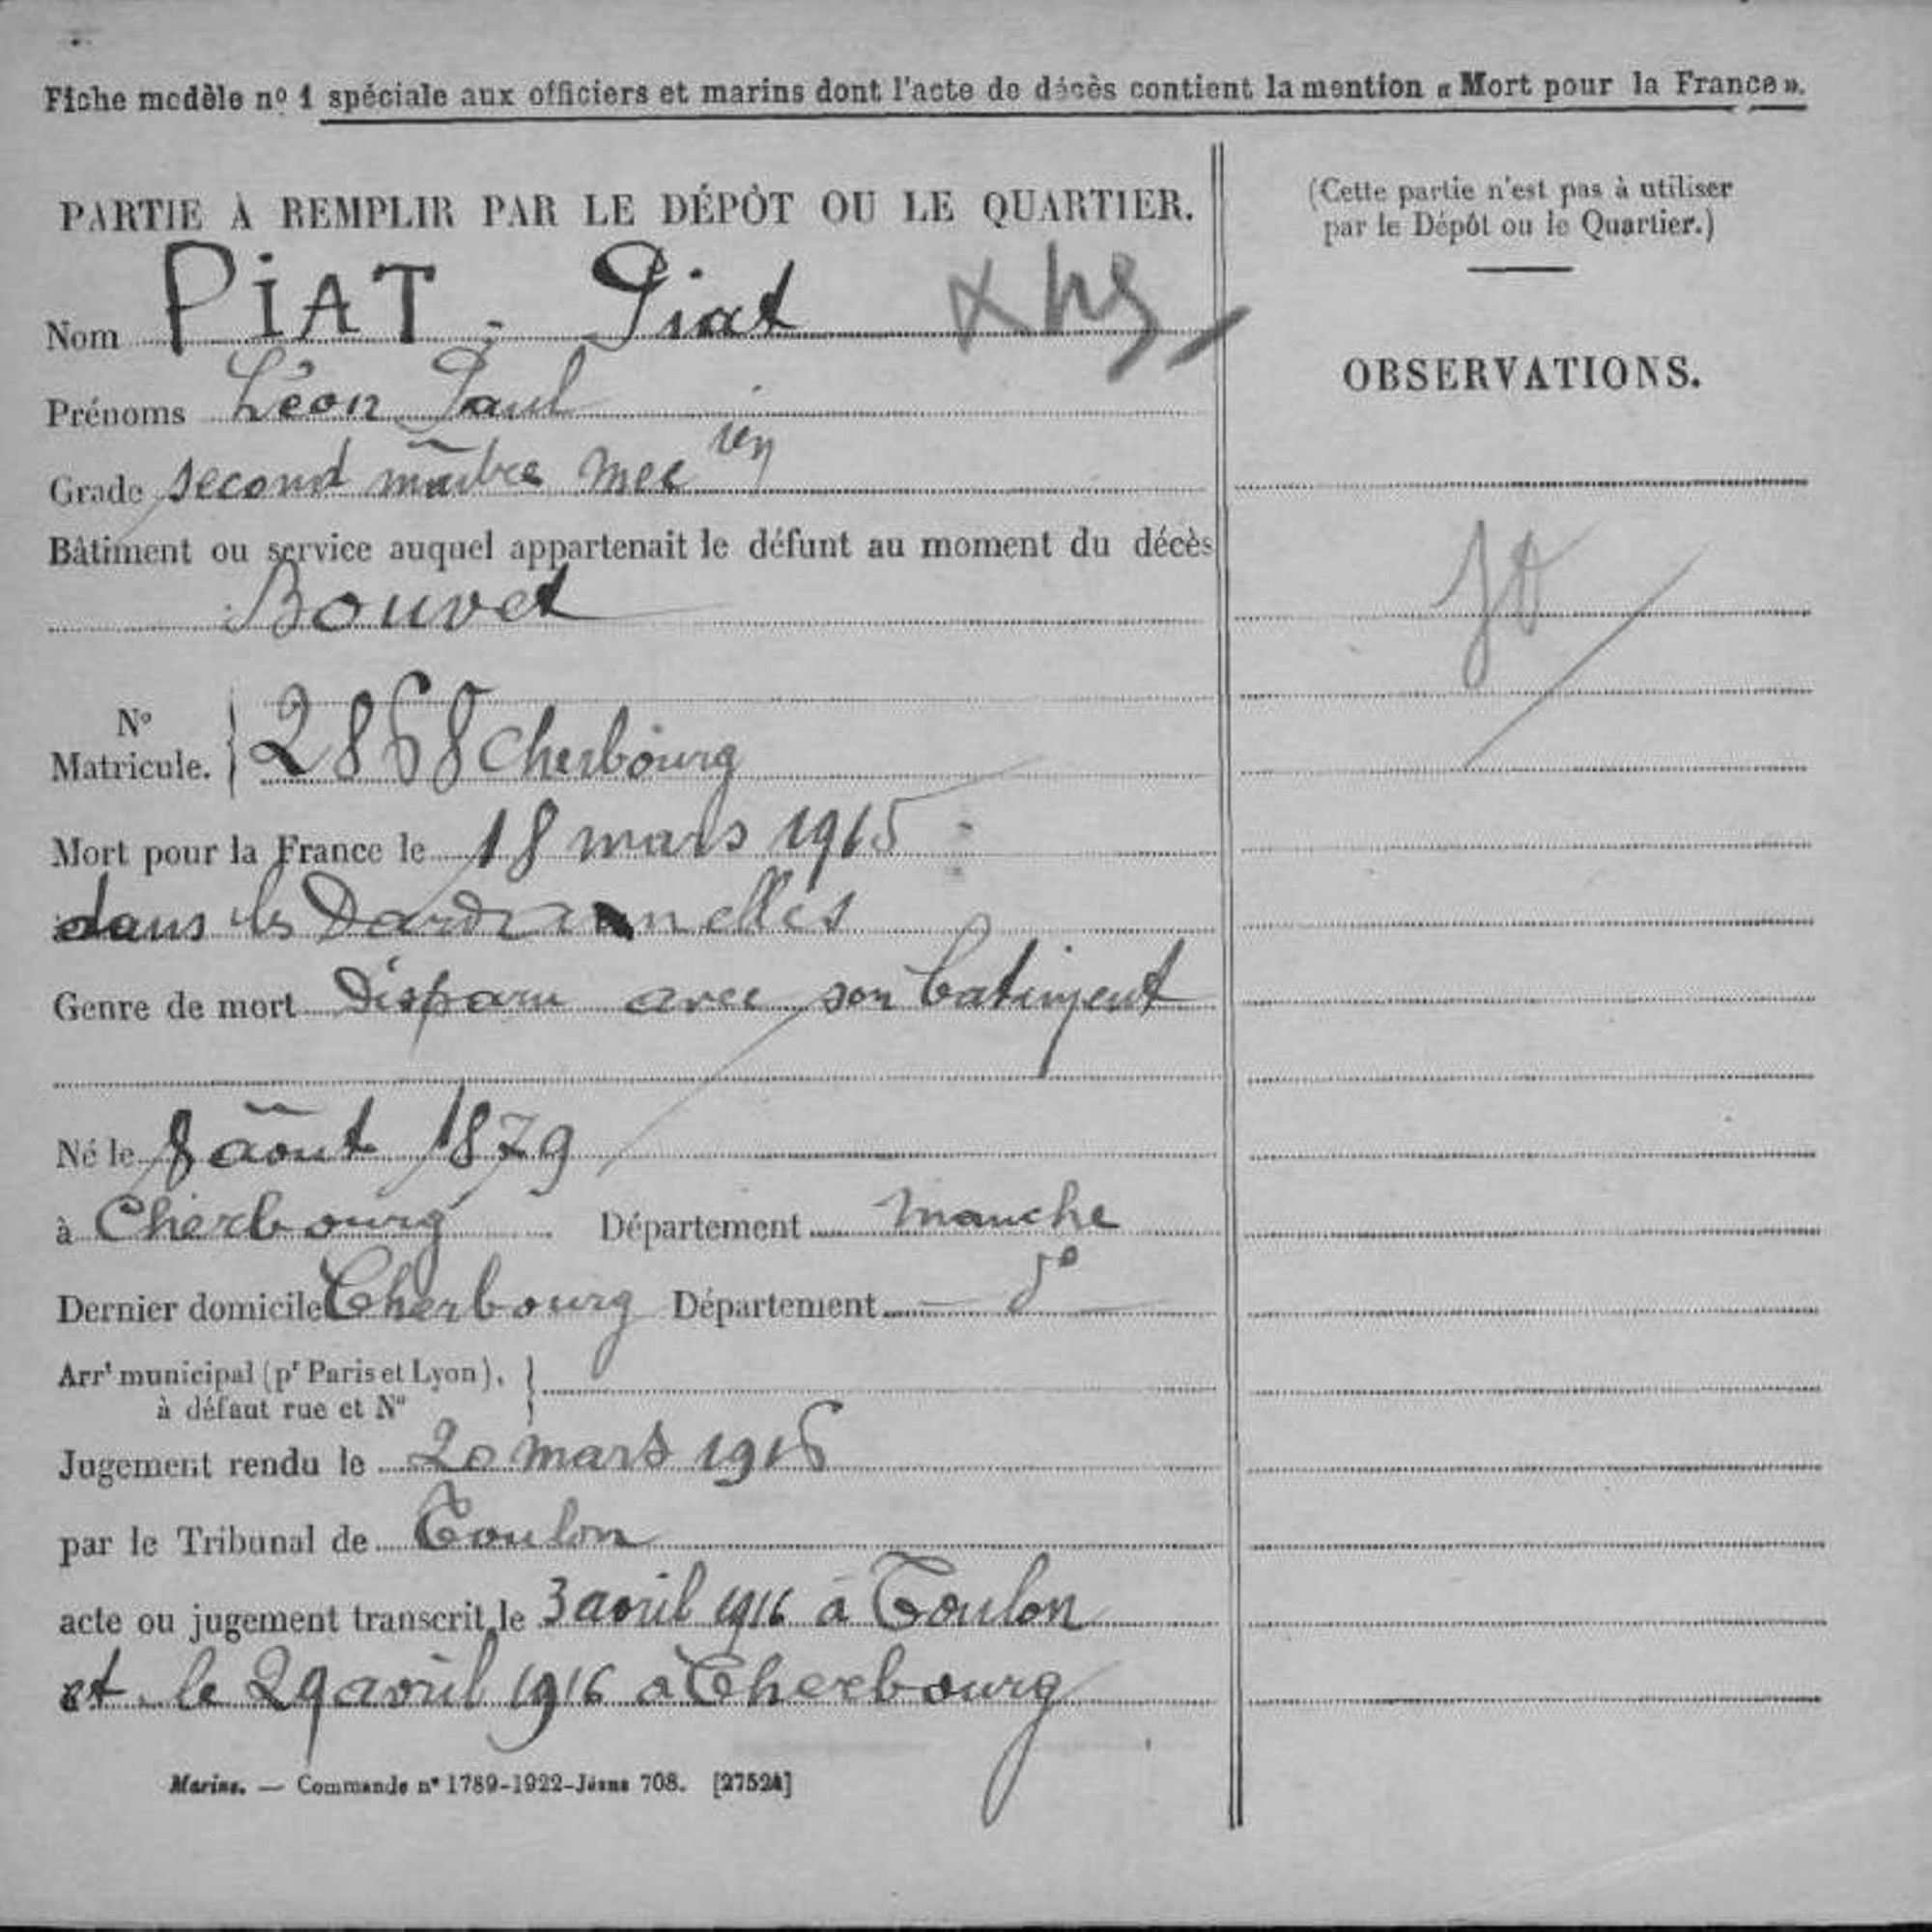 Fiche modèle nº 1 spéciale aux officiers et marins dont l'acte de décès contient la mention « Mort pour la France ».
PARTIE À REMPLIR PAR LE DÉPÔT OU LE QUARTIER.
Nom PIAT - Piat
Prénoms Léon Paul
Grade second maître mec ien
Bâtiment ou service auquel appartenait le défunt au moment du décès
Bouvet
Nº Matricule. } 2868 Cherbourg
Mort pour la France le 18 mars 1915
dans les Dardannelles
Genre de mort Disparu avec son batiment
Né le 8 août 1879
à Cherbourg Département Manche
Dernier domicile Cherbourg Département dº
Arrt municipal (pr Paris et Lyon), }
à défaut rue et Nº
Jugement rendu le 20 mars 1916
par le Tribunal de Toulon
acte ou jugement transcrit le 3 avril 1916 à Toulon
et le 29 avril 1916 à Cherbourg
Marine. — Commande nº 1789-1922-Jésus 708. [27524]
(Cette partie n'est pas à utiliser
par le Dépôt ou le Quartier.)
OBSERVATIONS.